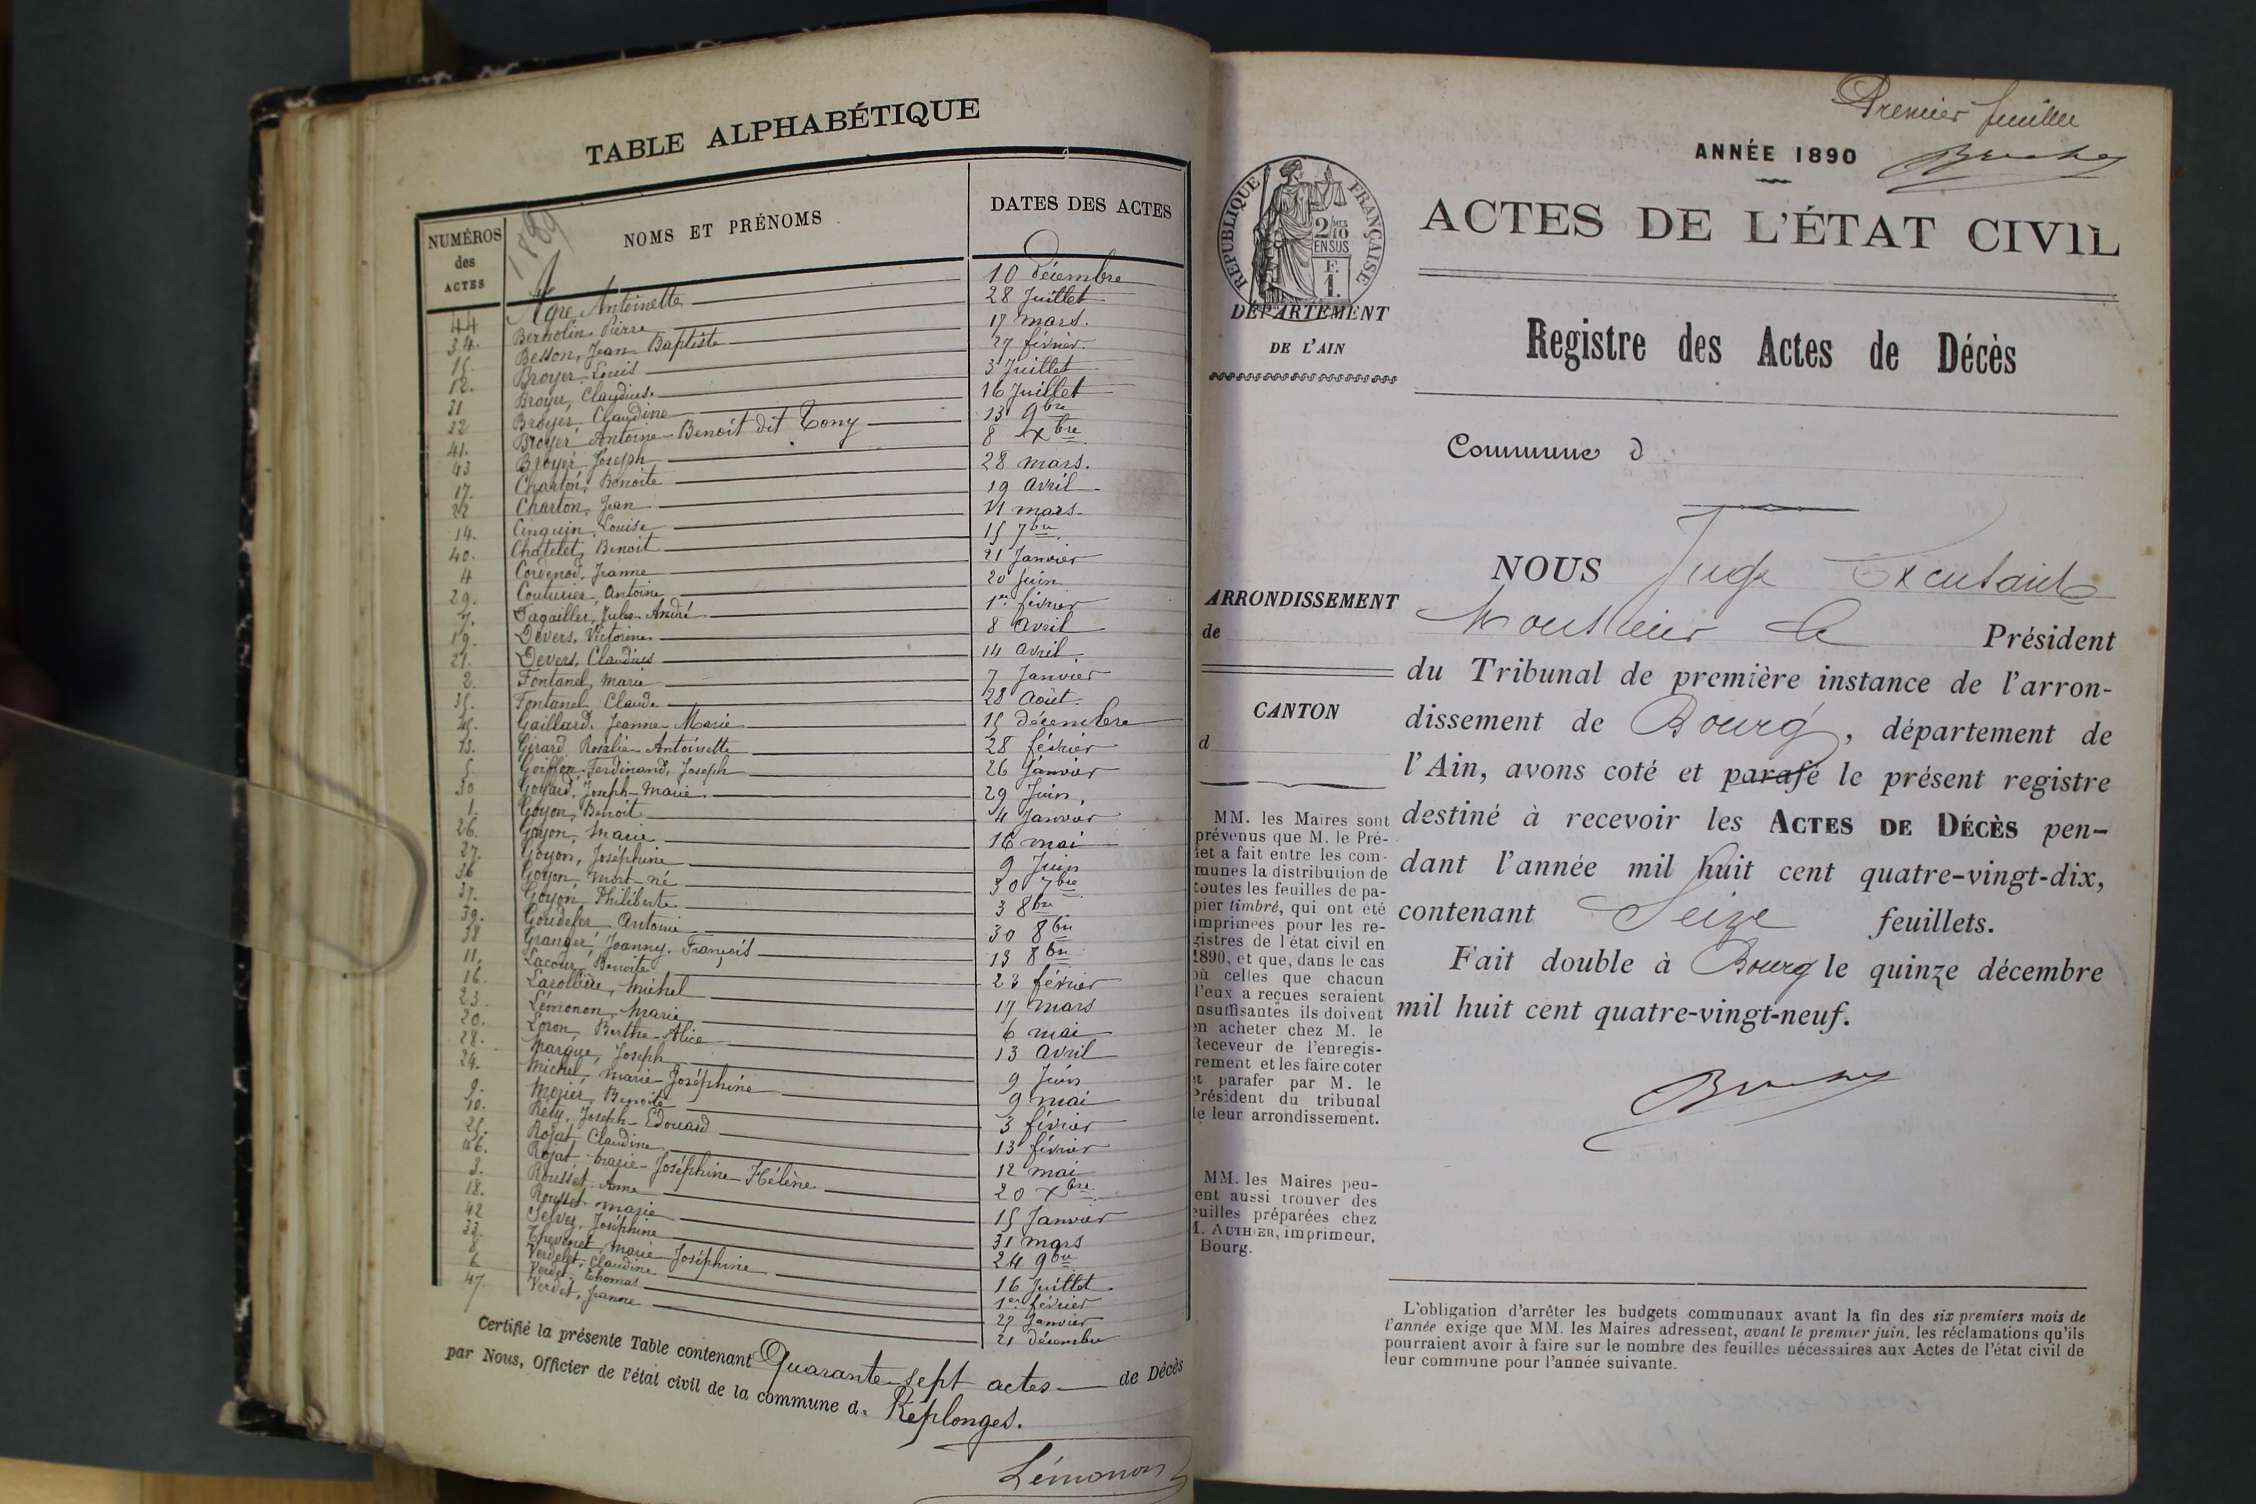 TABLE ALPHABÉTIQUE
NUMÉROS des ACTES
NOMS ET PRÉNOMS
DATES DES ACTES
1889
44 Agre Antoinette 10 décembre
34. Bernolin Pierre 28 Juillet
15. Besson, Jean Baptiste 17 mars.
12. Broyer Louis 27 février.
31 Broyer, Claudius. 3 Juillet
32 Broyer Claudine 16 Juillet
41. Broyer Antoine-Benoit dit Tony 13 9bre
43 Broyer Joseph 8 xbre
17. Charton, Benoite 28 mars.
22 Charton, Jean 19 avril
14. Cinquin Louise 11 mars
40. Chatelet, Benoit 15 7bre
4 Cordenod, Jeanne 21 Janvier
29. Couturier, Antoine 20 Juin
7. Dagailler, Jules André 1er février
19. Devers, Victorine 8 avril
21. Devers, Claudius 14 avril
2. Fontanel, Marie 7 Janvier
35. Fontanel Claude 28 Août.
45. Gaillard, Jeanne-Marie 15 décembre
13. Girard Rosalie Antoinette 28 février
5. Goiffon Ferdinand, Joseph 26 Janvier
30 Goyard, Joseph-Marie 29 Juin,
1. Goyon, Benoit 4 Janvier
26. Goyon, Marie 16 mai
27. Goyon, Joséphine 9 Juin
36 Goyon Mort-né 30 7bre
37. Goyon Philiberte 3 8bre
39. Goudefer Antoine 30 8bre
38 Granger Joanny, François 13 8bre
11. Lacour Benoite 23 février
16. Larollière, Michel 17 mars
23. Lémonon, Marie 6 mai
20. Loron, Berthe-Alice 13 avril
28. Marque, Joseph 9 Juin
24. Michel, Marie-Joséphine 9 mai
9. Mojier, Benoite 3 février
10. Réty, Joseph-Edouard 13 février
25. Rojat Claudine 12 mai
46. Rojat Marie-Joséphine-Hélène 20 xbre
3. Rousset Anne 15 Janvier
18. Rousset Marie 31 mars
42 Selves, Joséphine 24 9bre
33. Thevenet Marie Joséphine 16 Juillet
8 Verdelet, Claudine 1er février
6 Verdet, Thomas 27 Janvier
47. Verdet, Jeanne 21 décembre
Certifié la présente Table contenant Quarante-sept actes de Décès
par Nous, Officier de l'état civil de la commune d. Replonges.
Lémonon
Premier feuillet
ANNÉE 1890
RÉPUBLIQUE FRANÇAISE
2/10 MES
EN SUS
F.
1.
ACTES DE L'ÉTAT CIVIL
DÉPARTEMENT
DE L'AIN
Registre des Actes de Décès
Commune d
NOUS Juge Excusant
Monsieur le Président
ARRONDISSEMENT
de
du Tribunal de première instance de l'arron-
dissement de Bourg, département de
CANTON
d
l'Ain, avons coté et parafé le présent registre
destiné à recevoir les ACTES DE DÉCÈS pen-
dant l'année mil huit cent quatre-vingt-dix,
contenant Seize feuillets.
Fait double à Bourg le quinze décembre
mil huit cent quatre-vingt-neuf.
MM. les Maires sont
prévenus que M. le Pré-
fet a fait entre les com-
munes la distribution de
toutes les feuilles de pa-
pier timbré, qui ont été
imprimées pour les re-
gistres de l'état civil en
1890, et que, dans le cas
où celles que chacun
d'eux a reçues seraient
insuffisantes ils doivent
en acheter chez M. le
Receveur de l'enregis-
rement et les faire coter
et parafer par M. le
Président du tribunal
de leur arrondissement.
MM. les Maires peu-
ent aussi trouver des
euilles préparées chez
M. AUTHIER, imprimeur,
Bourg.
L'obligation d'arrêter les budgets communaux avant la fin des six premiers mois de
l'année exige que MM. les Maires adressent, avant le premier juin, les réclamations qu'ils
pourraient avoir à faire sur le nombre des feuilles nécessaires aux Actes de l'état civil de
leur commune pour l'année suivante.